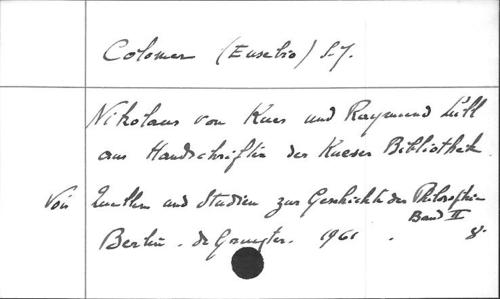 Colomer (Eusebio) S.J.
Nikolaus von Kues und Raymund Lull
aus Handschriften der Kueser Bibliothek
Voir Quellen und Studien zur Geschichte der Philosophie
Band II
Berlin - de Gruyter. 1961 . 8°